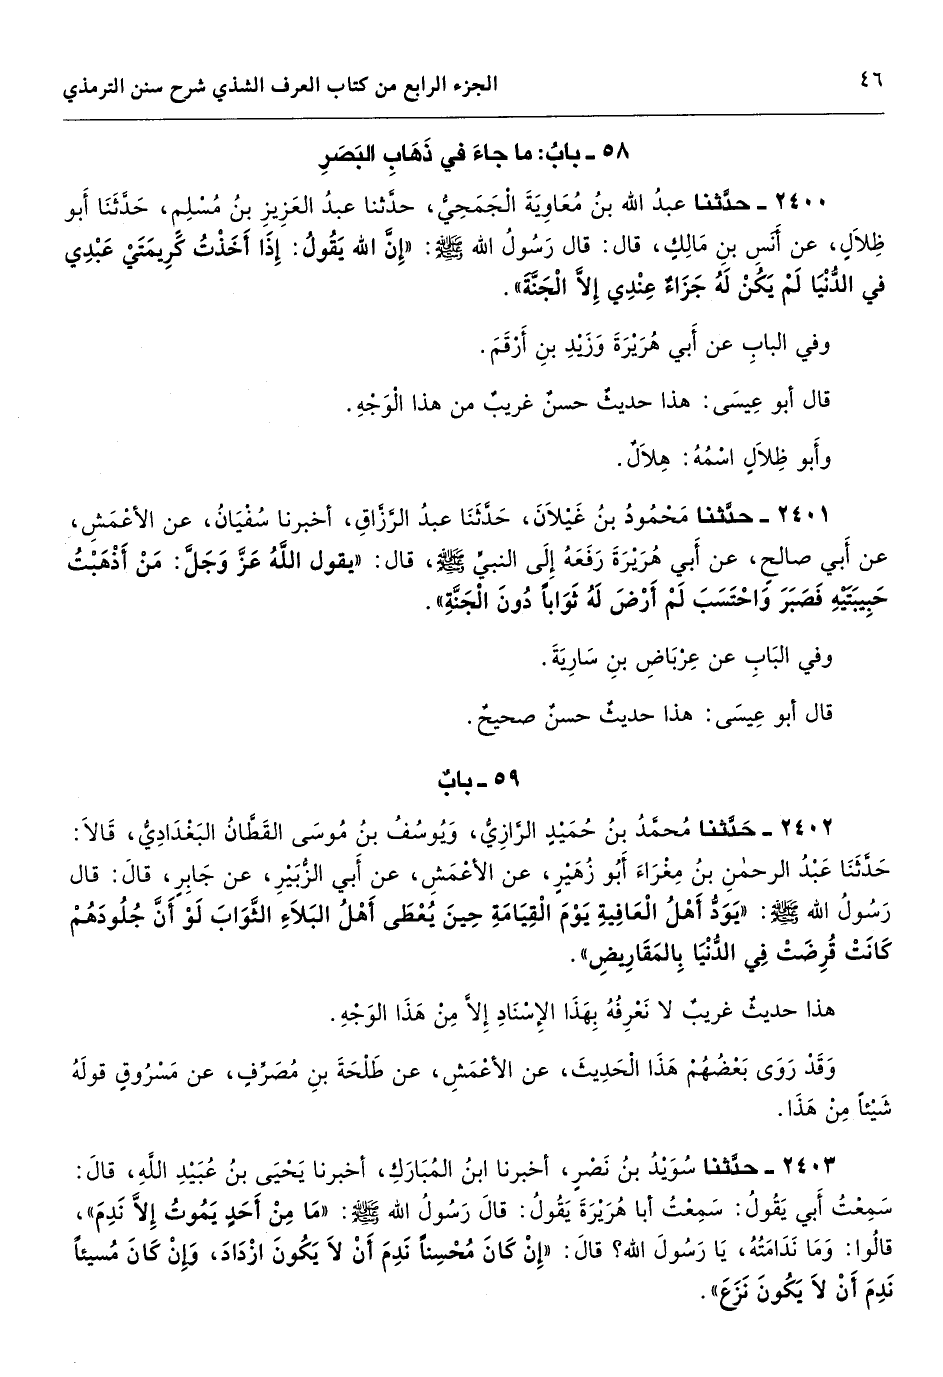 ٤٦
الجزء الرابع من كتاب العرف الشذي شرح سنن الترمذي
٥٨ ـ بابُ: ما جاءَ في ذَهَابِ البَصَرِ
٢٤٠٠ ـ حدَّثنا عبدُ الله بنُ مُعَاوِيَةَ الْجَمَحِيُّ، حدَّثنا عبدُ العَزِيزِ بنُ مُسْلِمٍ، حَدَّثَنَا أبو
ظِلاَلٍ، عن أَنَسِ بنِ مَالِكٍ، قال: قال رَسُولُ الله ﷺ: «إِنَّ الله يَقُولُ: إِذَا أَخَذْتُ كَرِيمَتَيْ عَبْدِي
في الدُّنْيَا لَمْ يَكُنْ لَهُ جَزَاءٌ عِنْدِي إِلاَّ الْجَنَّةَ».
وفي البابِ عن أَبي هُرَيْرَةَ وَزَيْدِ بنِ أَرْقَمَ.
قال أبو عِيسَى: هذا حديثٌ حسنٌ غريبٌ من هذا الْوَجْهِ.
وأَبو ظِلاَلٍ اسْمُهُ: هِلاَلٌ.
٢٤٠١ ـ حدَّثنا مَحْمُودُ بنُ غَيْلاَنَ، حَدَّثَنَا عبدُ الرَّزَّاقِ، أخبرنا سُفْيَانُ، عن الأعْمَشِ،
عن أَبي صالحٍ، عن أَبي هُرَيْرَةَ رَفَعَهُ إِلَى النبيِّ ﷺ، قال: «يقول اللَّهُ عَزَّ وَجَلَّ: مَنْ أَذْهَبْتُ
حَبِيبَتَيْهِ فَصَبَرَ وَاحْتَسَبَ لَمْ أَرْضَ لَهُ ثَوَاباً دُونَ الْجَنَّةِ».
وفي البَابِ عن عِرْبَاضِ بنِ سَارِيَةَ.
قال أبو عِيسَى: هذا حديثٌ حسنٌ صحيحٌ.
٥٩ ـ بابٌ
٢٤٠٢ ـ حَدَّثَنا مُحمَّدُ بنُ حُمَيْدٍ الرَّازِيُّ، وَيُوسُفُ بنُ مُوسَى القَطَّانُ البَغْدَادِيُّ، قَالاَ:
حَدَّثَنَا عَبْدُ الرحمٰنِ بنُ مِغْرَاءَ أَبُو زُهَيْرٍ، عن الأعْمَشِ، عن أَبي الزُّبَيْرِ، عن جَابِرٍ، قالَ: قال
رَسُولُ الله ﷺ: «يَوَدُّ أَهْلُ الْعَافِيةِ يَوْمَ القِيَامَةِ حِينَ يُعْطَى أَهْلُ البَلاَءِ الثَّوَابَ لَوْ أَنَّ جُلُودَهُمْ
كَانَتْ قُرِضَتْ فِي الدُّنْيَا بِالمَقَارِيضِ».
هذا حديثٌ غريبٌ لا نَعْرِفُهُ بِهَذَا الإِسْنَادِ إِلاَّ مِنْ هَذَا الوَجْهِ.
وَقَدْ رَوَى بَعْضُهُمْ هَذَا الْحَدِيثَ، عن الأعْمَشِ، عن طَلْحَةَ بنِ مُصَرِّفٍ، عن مَسْرُوقٍ قولَهُ
شَيْئاً مِنْ هَذَا.
٢٤٠٣ ـ حدَّثنا سُوَيْدُ بنُ نَصْرٍ، أخبرنا ابنُ المُبَارَكِ، أخبرنا يَحْيَى بنُ عُبَيْدِ اللَّهِ، قالَ:
سَمِعْتُ أَبي يَقُولُ: سَمِعْتُ أبا هُرَيْرَةَ يَقُولُ: قالَ رَسُولُ الله ﷺ: «مَا مِنْ أَحَدٍ يَمُوتُ إِلاَّ نَدِمَ»،
قالُوا: وَمَا نَدَامَتُهُ، يَا رَسُولَ الله؟ قالَ: «إِنْ كَانَ مُحْسِناً نَدِمَ أَنْ لاَ يَكُونَ ازْدَادَ، وَإِنْ كَانَ مُسيئاً
نَدِمَ أَنْ لاَ يَكُونَ نَزَعَ».